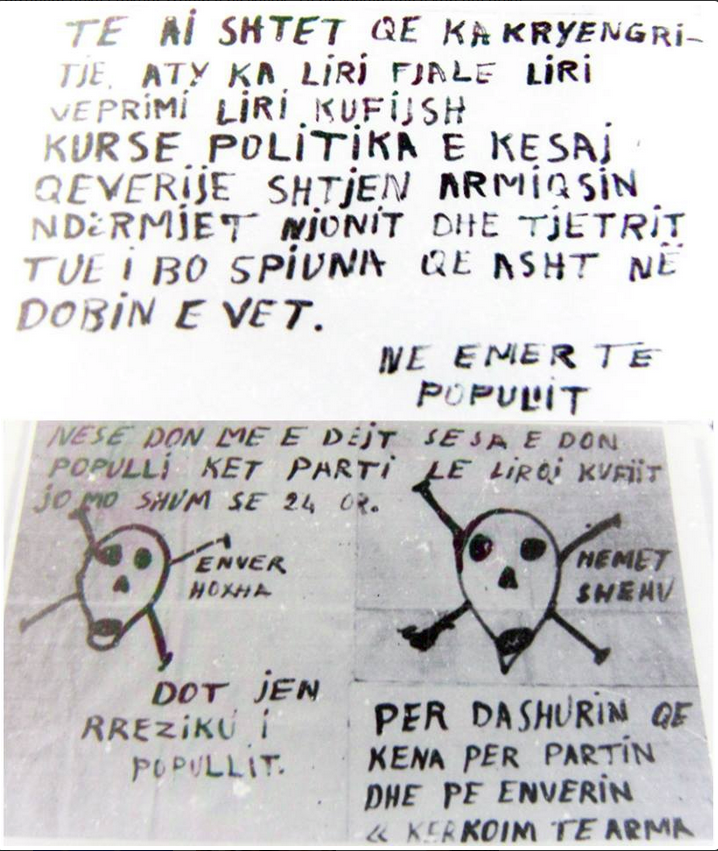 TE AI SHTET QE KA KRYENGRI-
TJE. ATY KA LIRI FJALE LIRI
VEPRIMI LIRI KUFIJSH
KURSE POLITIKA E KESAJ
QEVERIJE SHTJEN ARMIQSIN
NDËRMJET NJONIT DHE TJETRIT
TUE I BO SPIUNA QE ASHT NË
DOBIN E VET.
NE EMER TE
POPULLIT
NESE DON ME E DEJT SESA E DON
POPULLI KET PARTI LE LIROJ KUFIIT
JO MO SHUM SE 24 OR.
ENVER
HOXHA
MEMET
SHEHU
DOT JEN
RREZIKU I
POPULLIT.
PER DASHURIN QE
KENA PER PARTIN
DHE PE ENVERIN
« KERKOIM TE ARMA